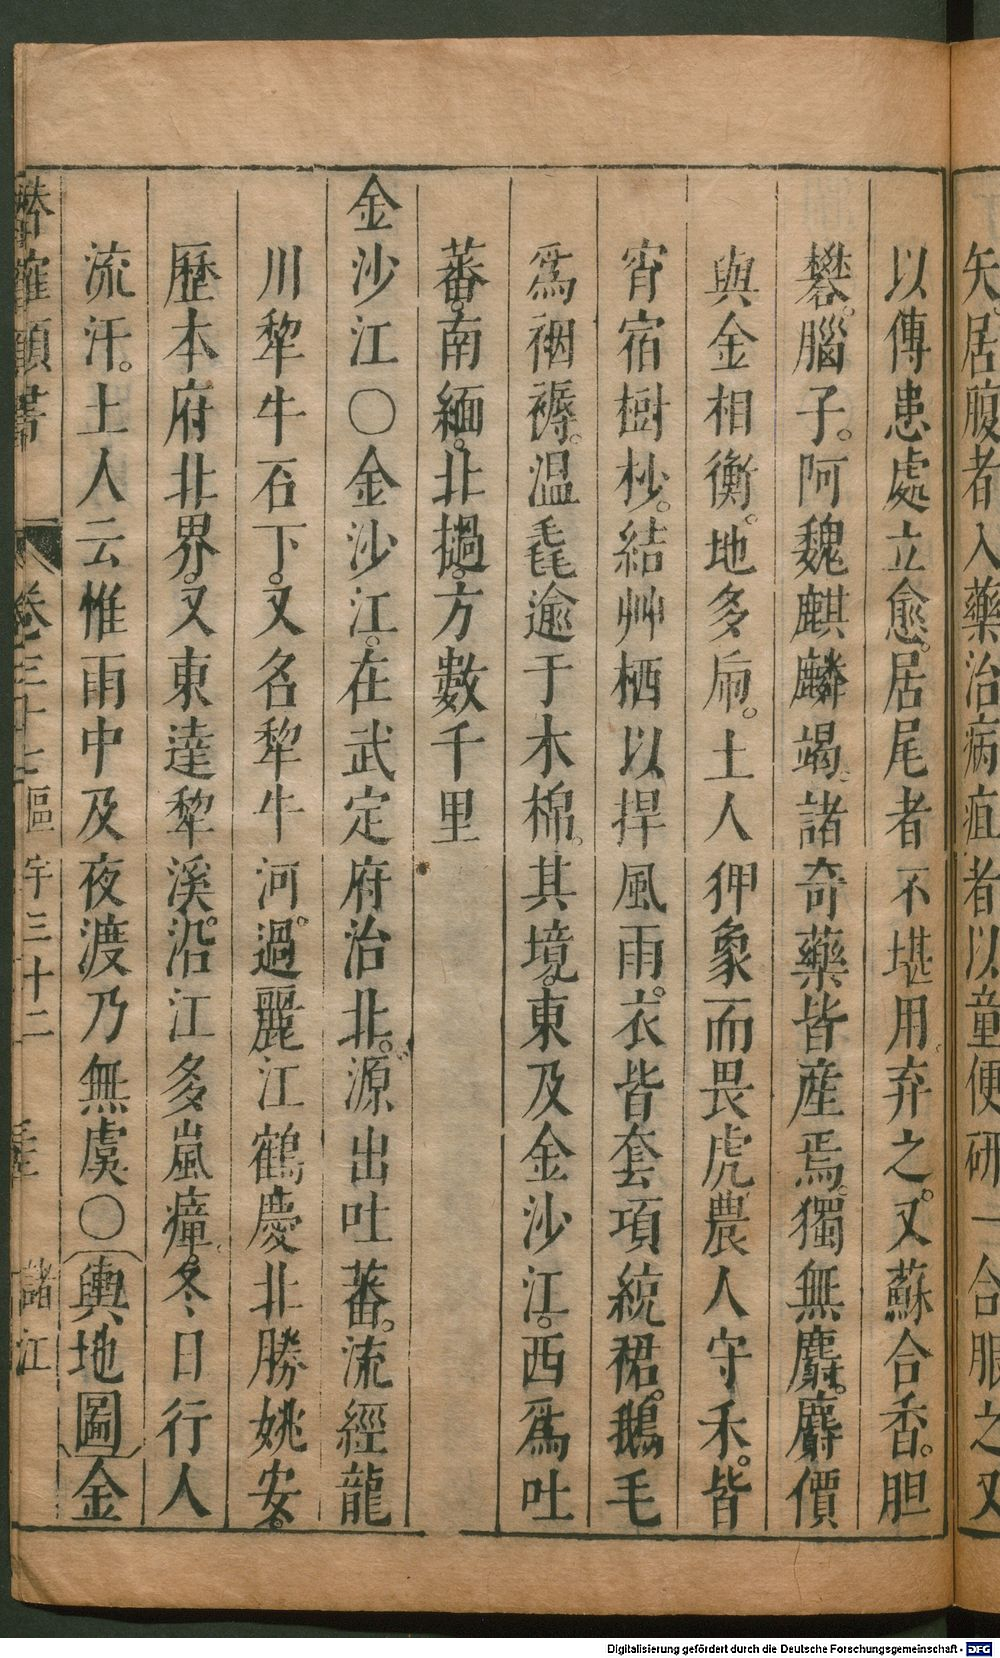 矢。居腹者入藥治病疽者以童便研一合服之又
以傳患處立愈。居尾者不堪用弃之。又蘇合香。胆
礬。腦子。阿魏麒麟竭。諸奇藥皆産焉。獨無麝。麝價
與金相衡。地多㾕。土人狎象而畏虎農人守禾。皆
宵宿樹杪。結艸栖以捍風雨。衣皆套項統裙。鵝毛
爲裀褥。温毳逾于木棉。其境。東及金沙江。西爲吐
蕃。南緬。北撾。方數千里
金沙江〇金沙江。在武定府治北。源出吐蕃。流經龍
川犂牛石下。又名犂牛河。過麗江鶴慶北勝姚安。
歷本府北界。又東達犂溪。沿江多嵐瘴。冬日行人
流汗。土人云惟雨中及夜渡乃無虞〇輿地圖金
卷三十七 區宇三十二 諸江
Digitalisierung gefördert durch die Deutsche Forschungsgemeinschaft - DFG